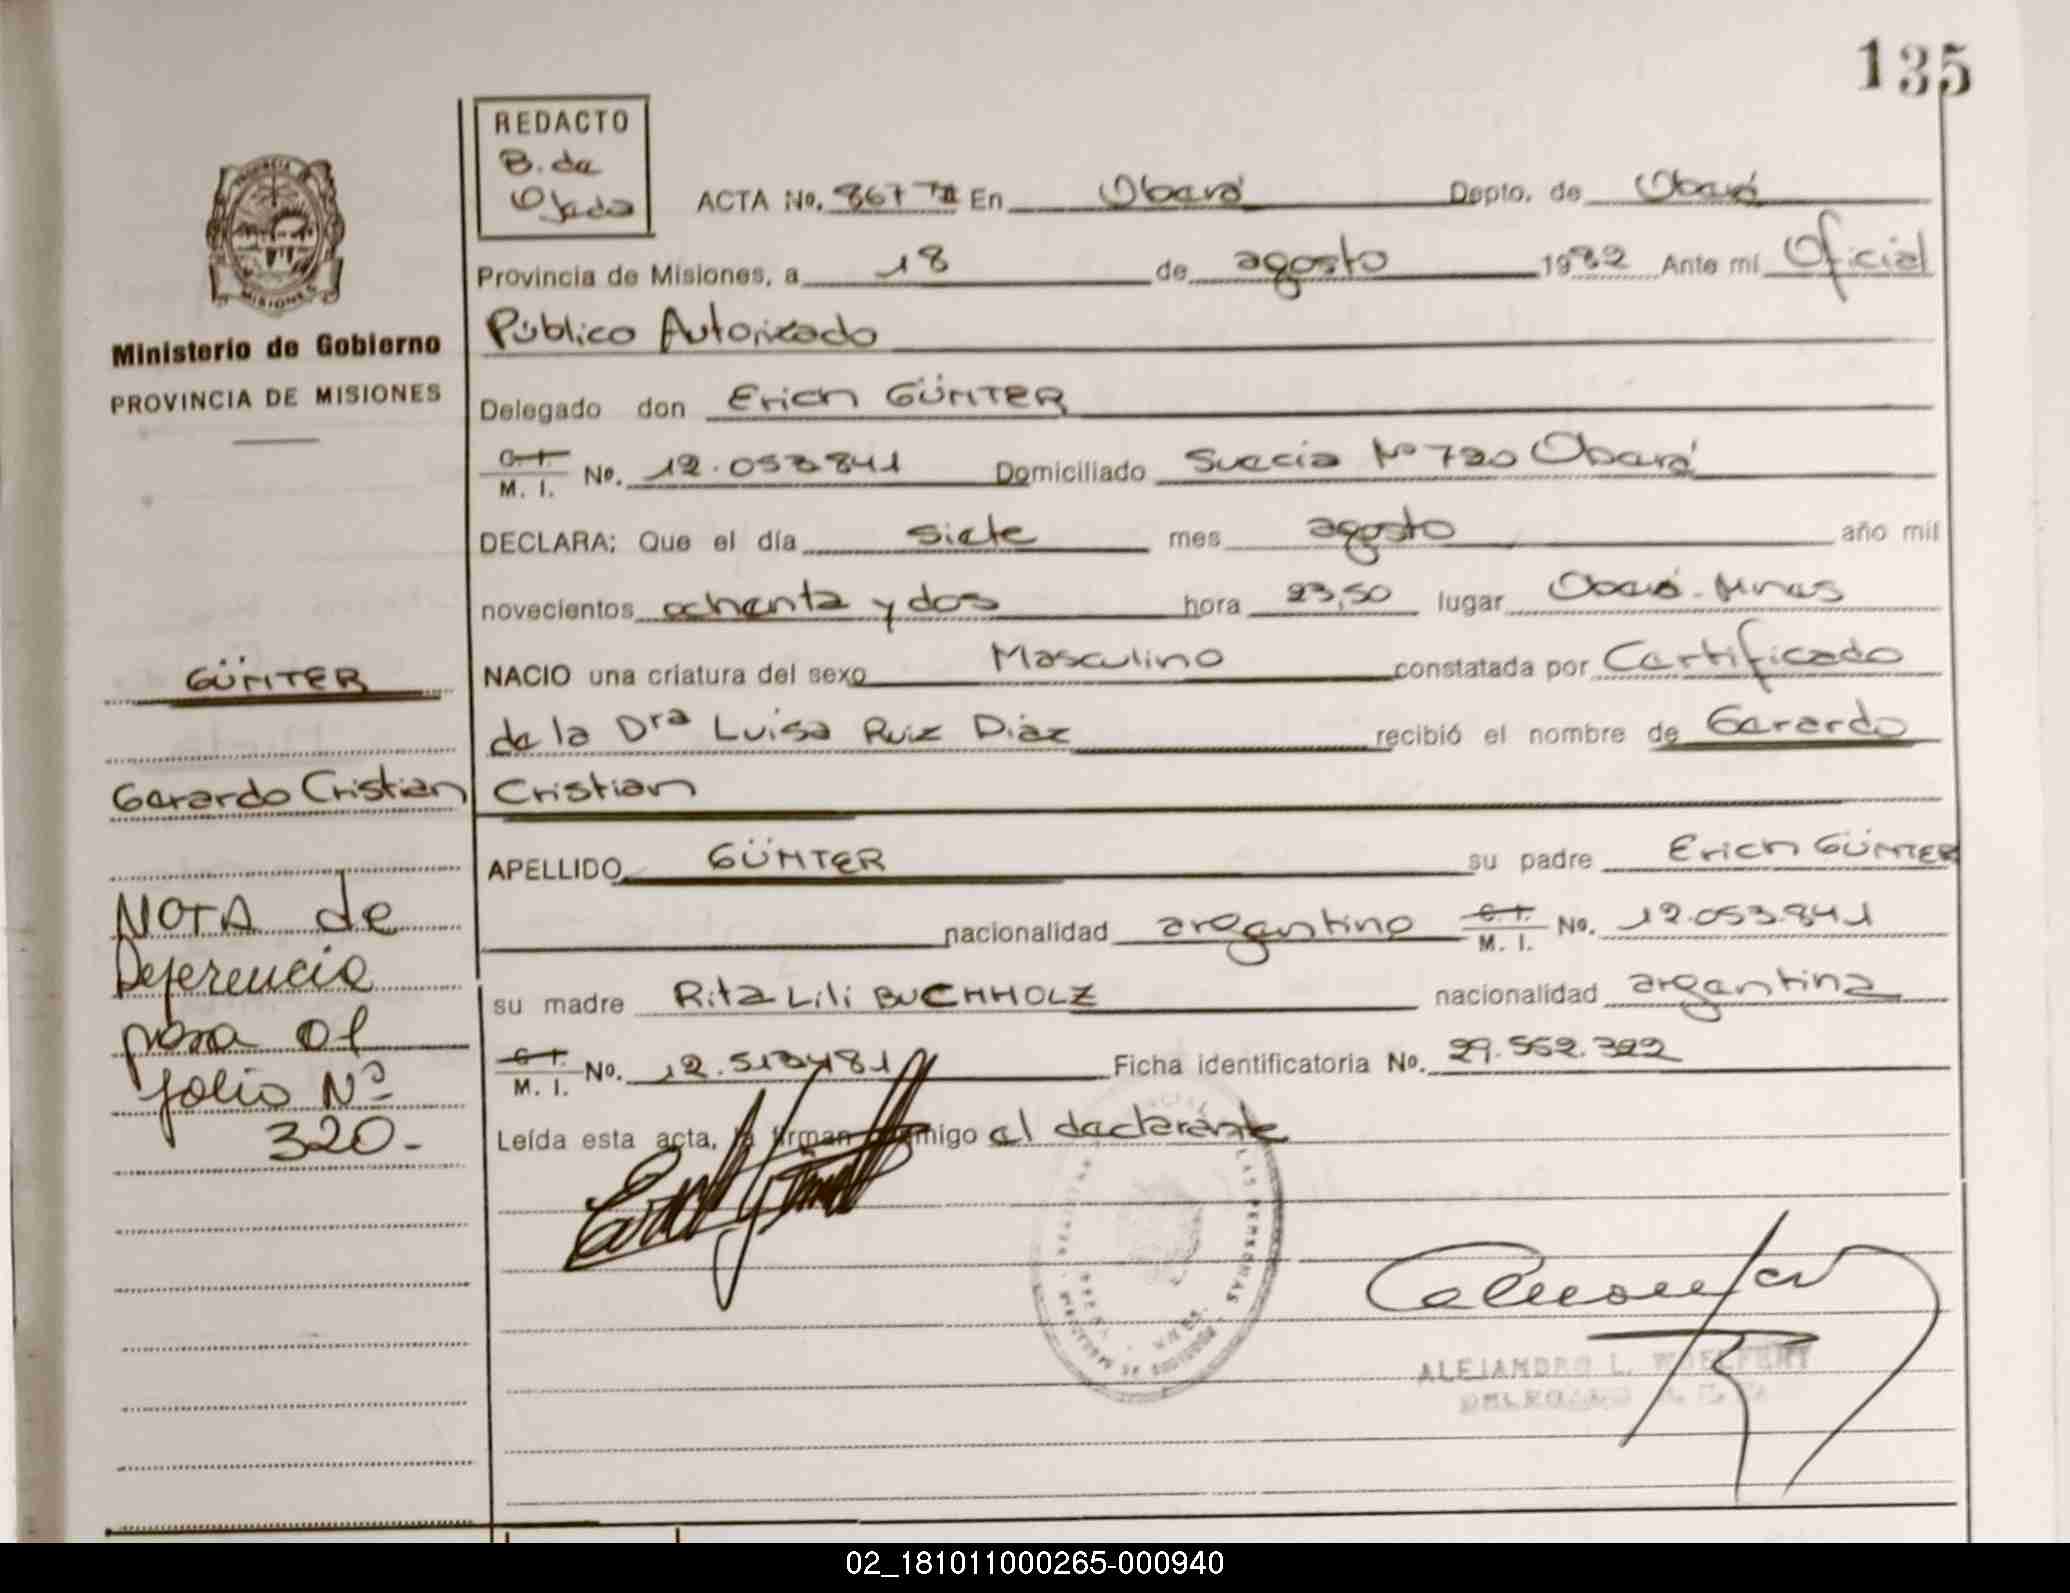 135
REDACTO
B. de
Ojeda
ACTA No. 867 TII En Oberá Depto. de Oberá
Provincia de Misiones, a 18 de agosto 1982 Ante mí Oficial
Público Autorizado
Ministerio de Gobierno
PROVINCIA DE MISIONES
Delegado don Erich GÜNTER
C. I.
M. I. No. 12.053.841 Domiciliado Suecia Nº 720 Oberá
DECLARA; Que el día siete mes agosto año mil
novecientos ochenta y dos hora 23,50 lugar Oberá-Mnes
NACIO una criatura del sexo Masculino constatada por Certificado
GÜNTER
de la Dra Luisa Ruiz Diaz recibió el nombre de Gerardo
Gerardo Cristian
Cristian
APELLIDO GÜNTER su padre Erich GÜNTER
nacionalidad argentino C. I.
M. I. No. 12.053.841
su madre Rita Lili BUCHHOLZ nacionalidad argentina
C. I.
M. I. No. 12.513481 Ficha identificatoria No. 29.552.322
Leída esta acta, la firman conmigo el declarante
NOTA de
Referencia
pasa al
folio Nº
320-
LAS PERSONAS
ALEJANDRO L.
DELEGADO
02_181011000265-000940